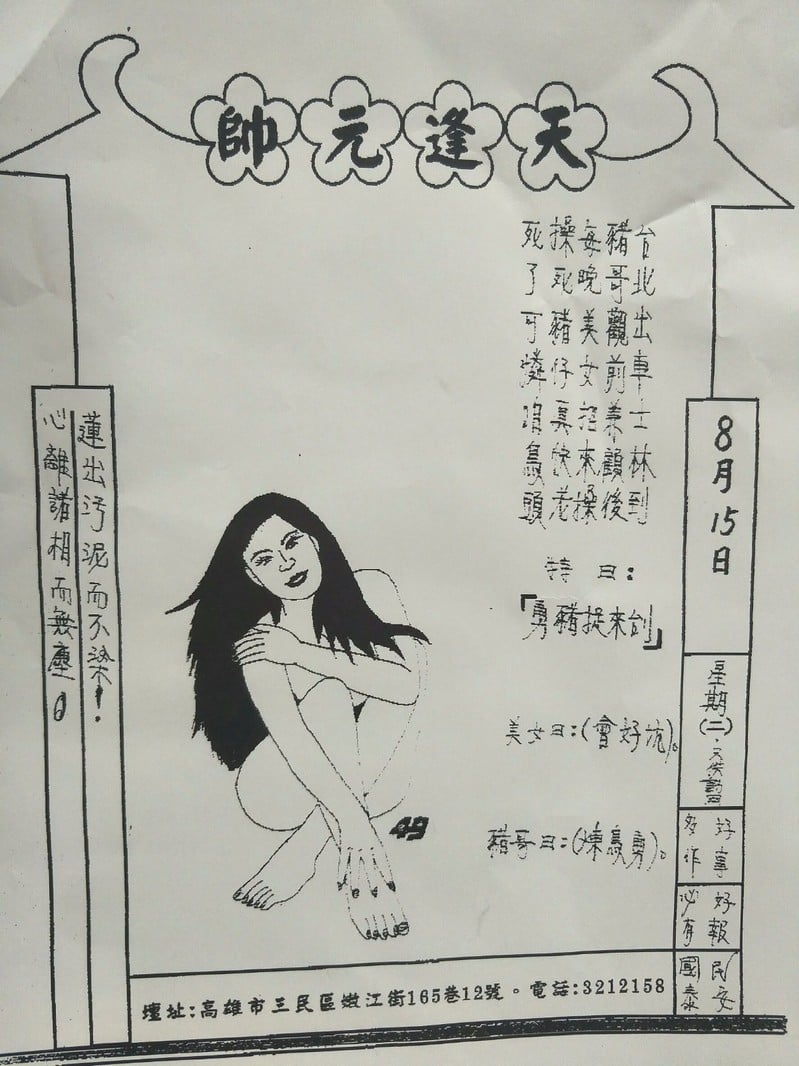 天逢元帥
8月15日
星期(二)
好事
多作
好報
必有
民安
國泰
台北出車士林到
豬哥觀前兼顧後
每晚美女招來操
操死豬仔真快老
死了可憐鳥頭
曰:
「勇豬捉來刣」
美女曰:(會好坑)。
豬哥曰:(煉鳥勇)。
49
蓮出污泥而不染!
心離諸相而無塵。
壇址:高雄市三民區嫩江街165巷12號。電話:3212158